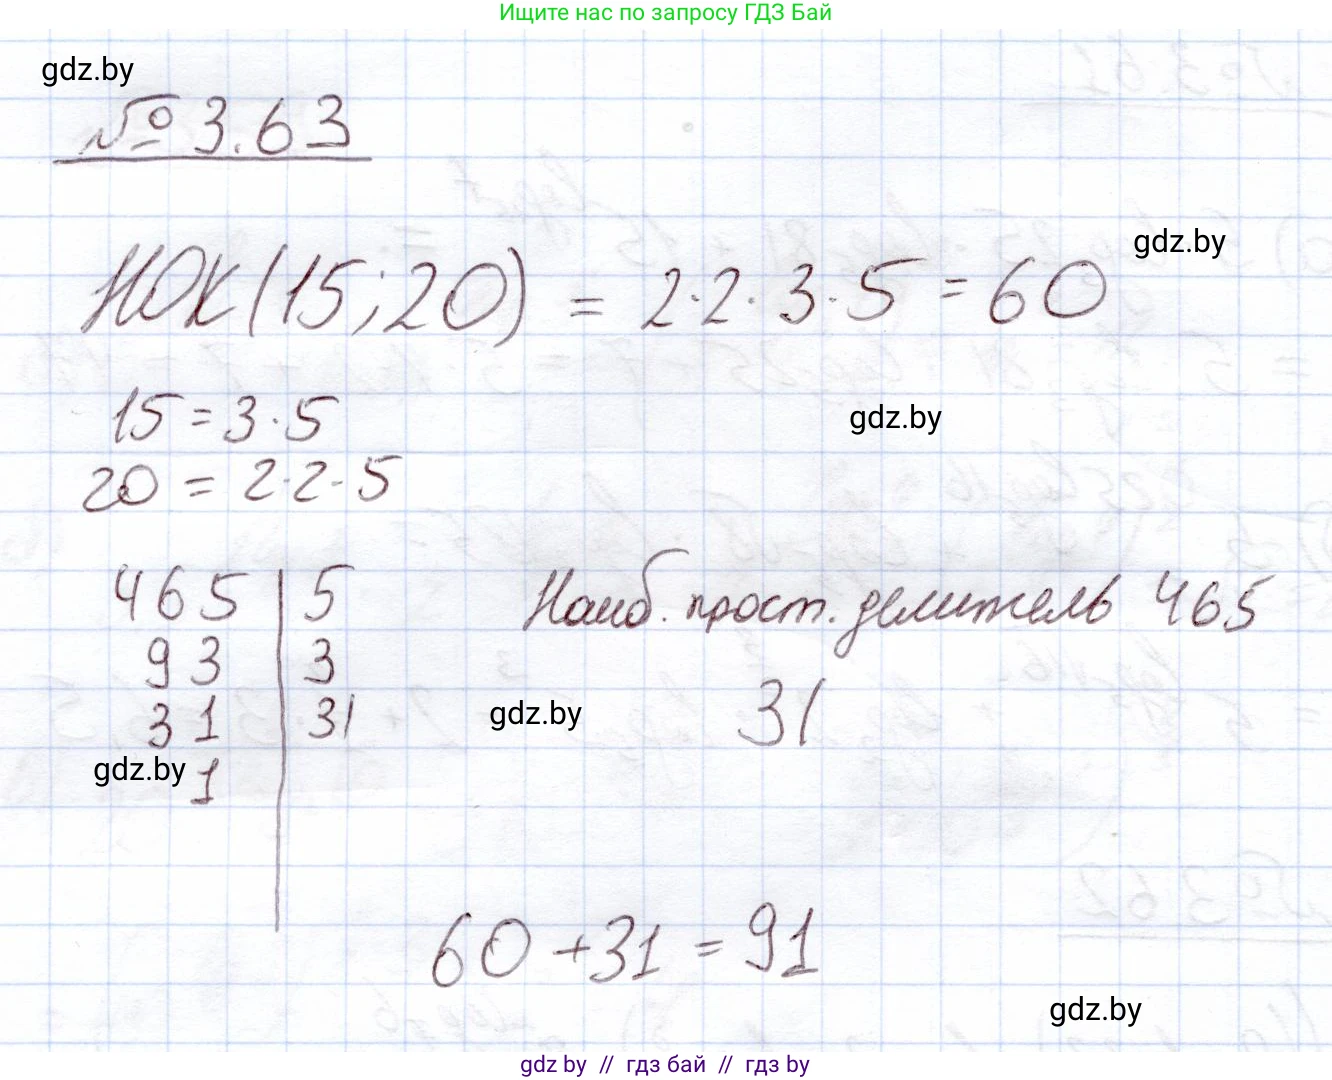 Ищите нас по запросу ГДЗ Бай
gdz.by
№ 3.63
gdz.by
НОК(15;20) = 2·2·3·5 = 60
15 = 3·5
gdz.by
20 = 2·2·5
465 | 5
Наиб. прост. делитель 465
93 | 3
31 | 31
31
gdz.by
gdz.by
1
60 + 31 = 91
gdz.by
gdz.by // гдз бай // гдз by